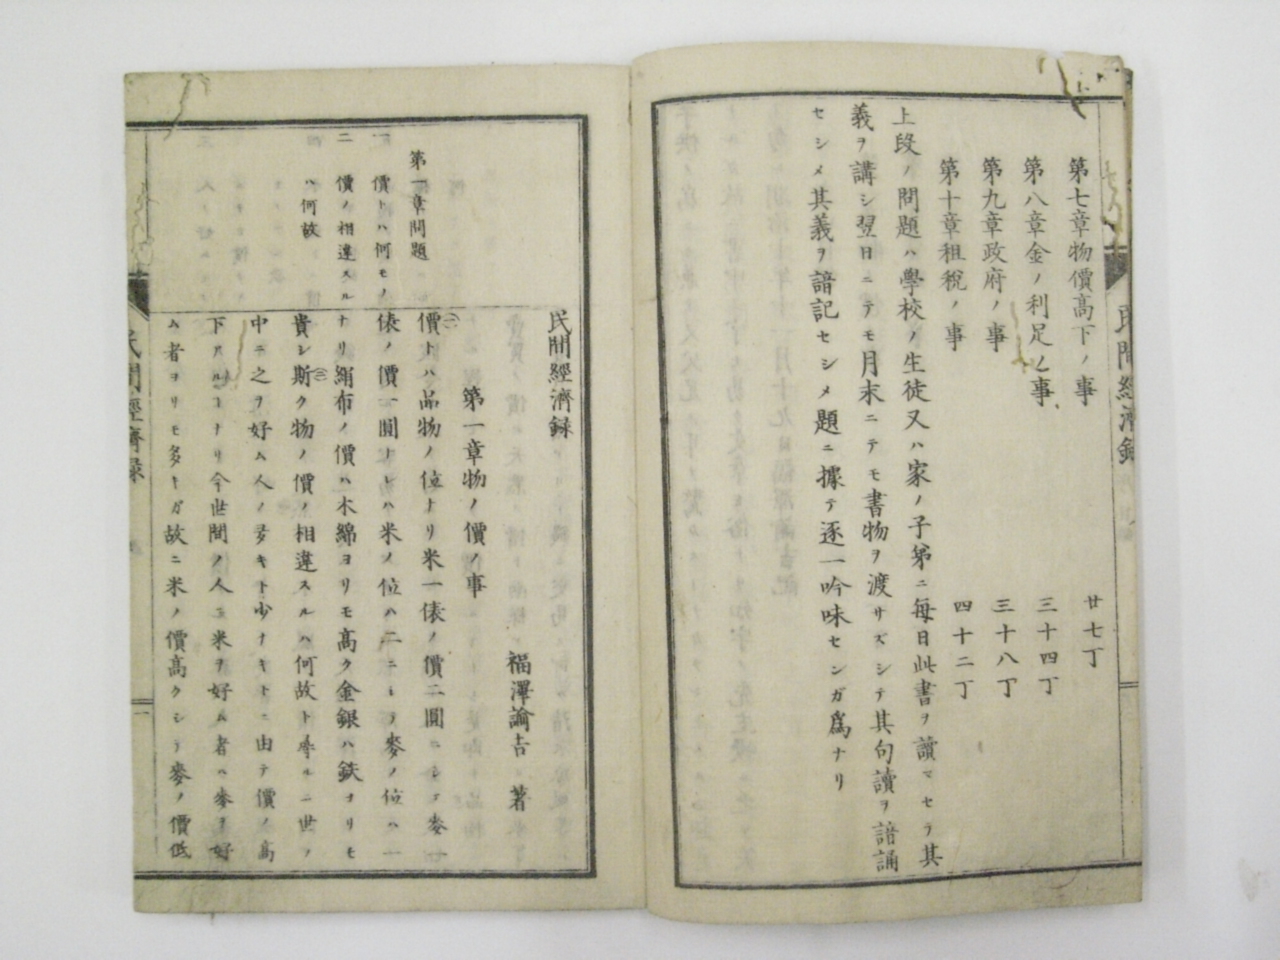 第七章物價高下ノ事 廿七丁
第八章金ノ利足ノ事 三十四丁
第九章政府ノ事 三十八丁
第十章租税ノ事 四十二丁
上段ノ問題ハ學校ノ生徒又ハ家ノ子弟ニ毎日此書ヲ讀マセテ其
義ヲ講シ翌日ニテモ月末ニテモ書物ヲ渡サズシテ其句讀ヲ諳誦
セシメ其義ヲ諳記セシメ題ニ據テ逐一吟味センガ爲ナリ
民間經濟録
民間經濟録
福澤諭吉 著
第一章物ノ價ノ事
第一章問題
一 價トハ何モノ
二 價ノ相違スル
ハ何故
(一)價トハ品物ノ位ナリ米一俵ノ價二圓ニシテ麥一
俵ノ價一圓トレハ米ノ位ハ二ニシテ麥ノ位ハ一
ナリ絹布ノ價ハ木綿ヨリモ高ク金銀ハ鉄ヨリモ
貴シ(二)斯ク物ノ價ノ相違スルハ何故ト尋ルニ世ノ
中ニ之ヲ好ム人ノ多キト少ナキトニ由テ價ノ高
下アルコトナリ今世間ノ人ニ米ヲ好ム者ハ麥ヲ好
ム者ヨリモ多キガ故ニ米ノ價高クシテ麥ノ價低
民間經濟録
一